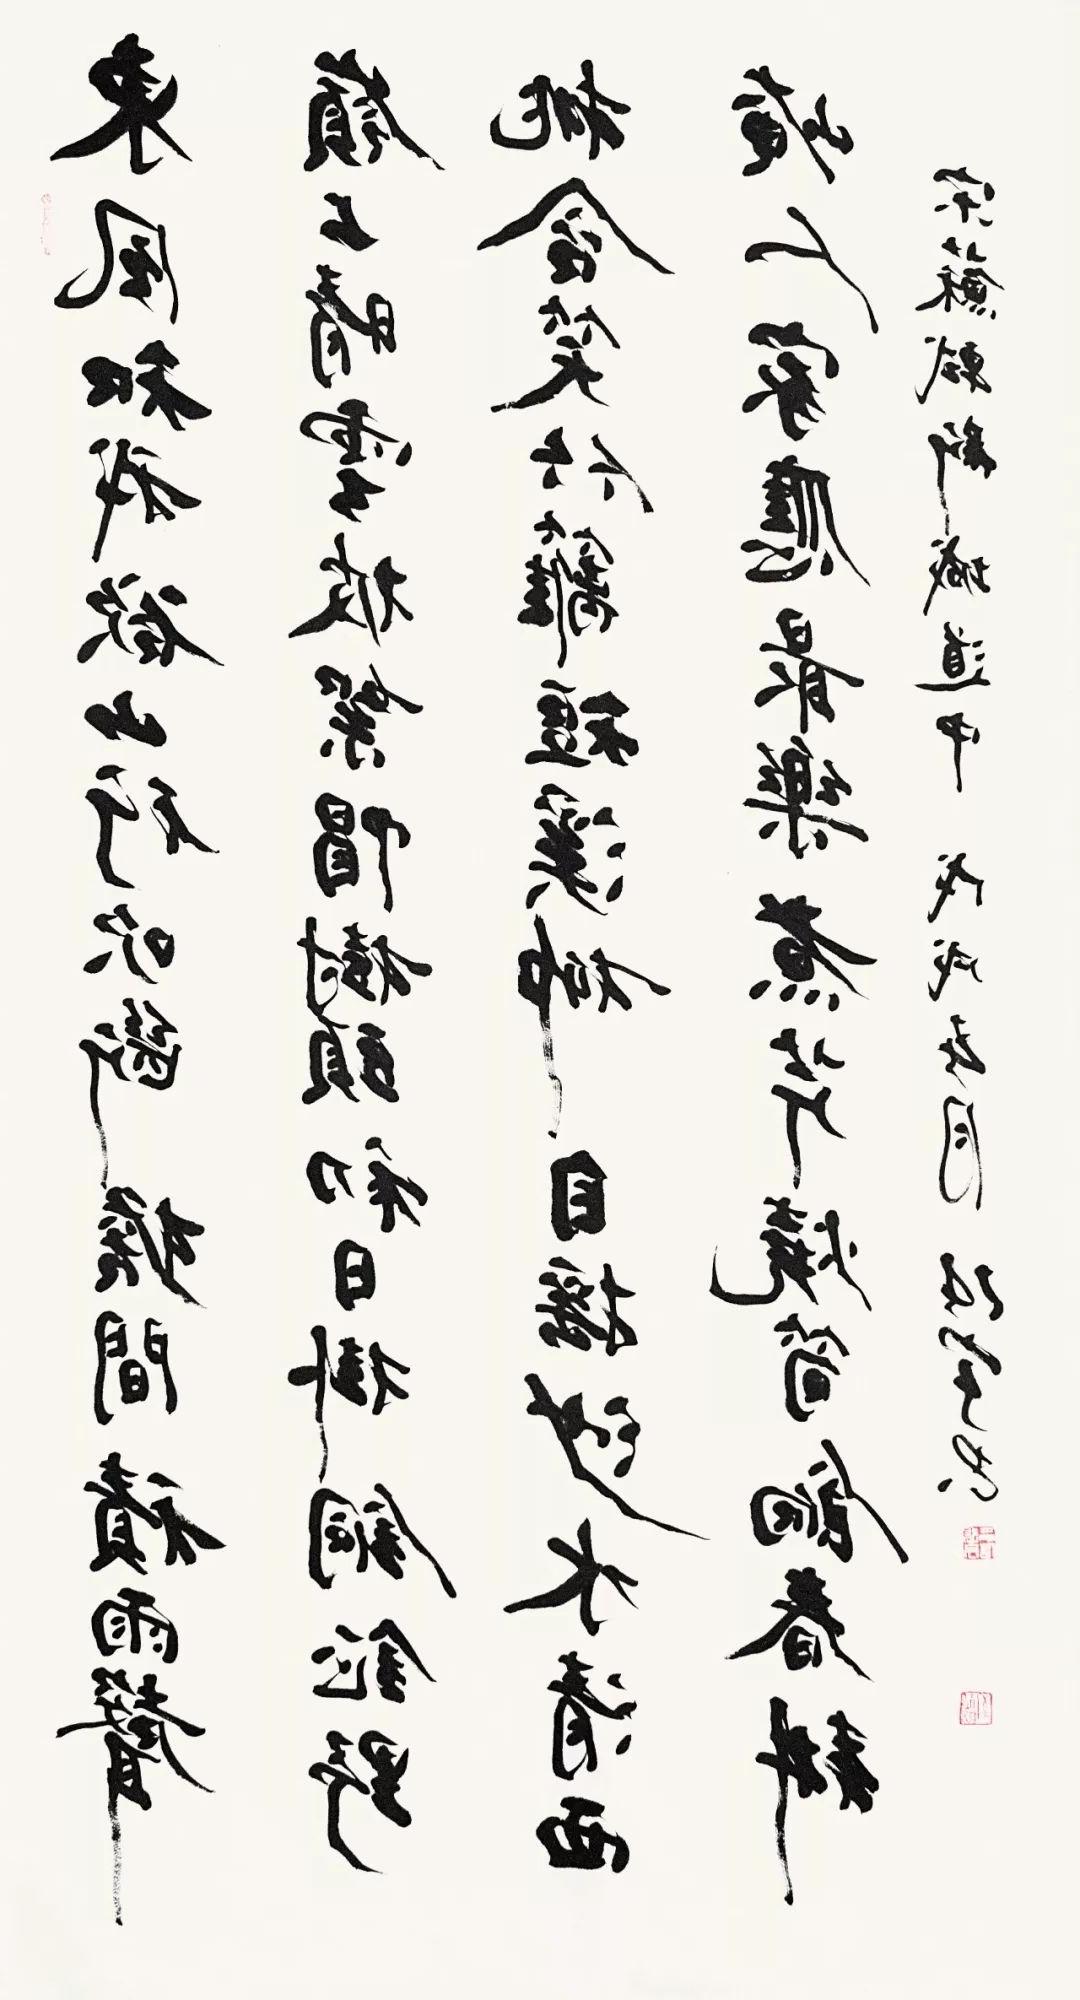 東風知我欲山行吹斷檐間積雨聲
嶺上晴雲披絮帽樹頭初日掛銅鉦野
桃含笑竹籬短溪柳自搖沙水清西
崦人家應最樂煮芹燒筍餉春耕
宋蘇軾新城道中 戊戌